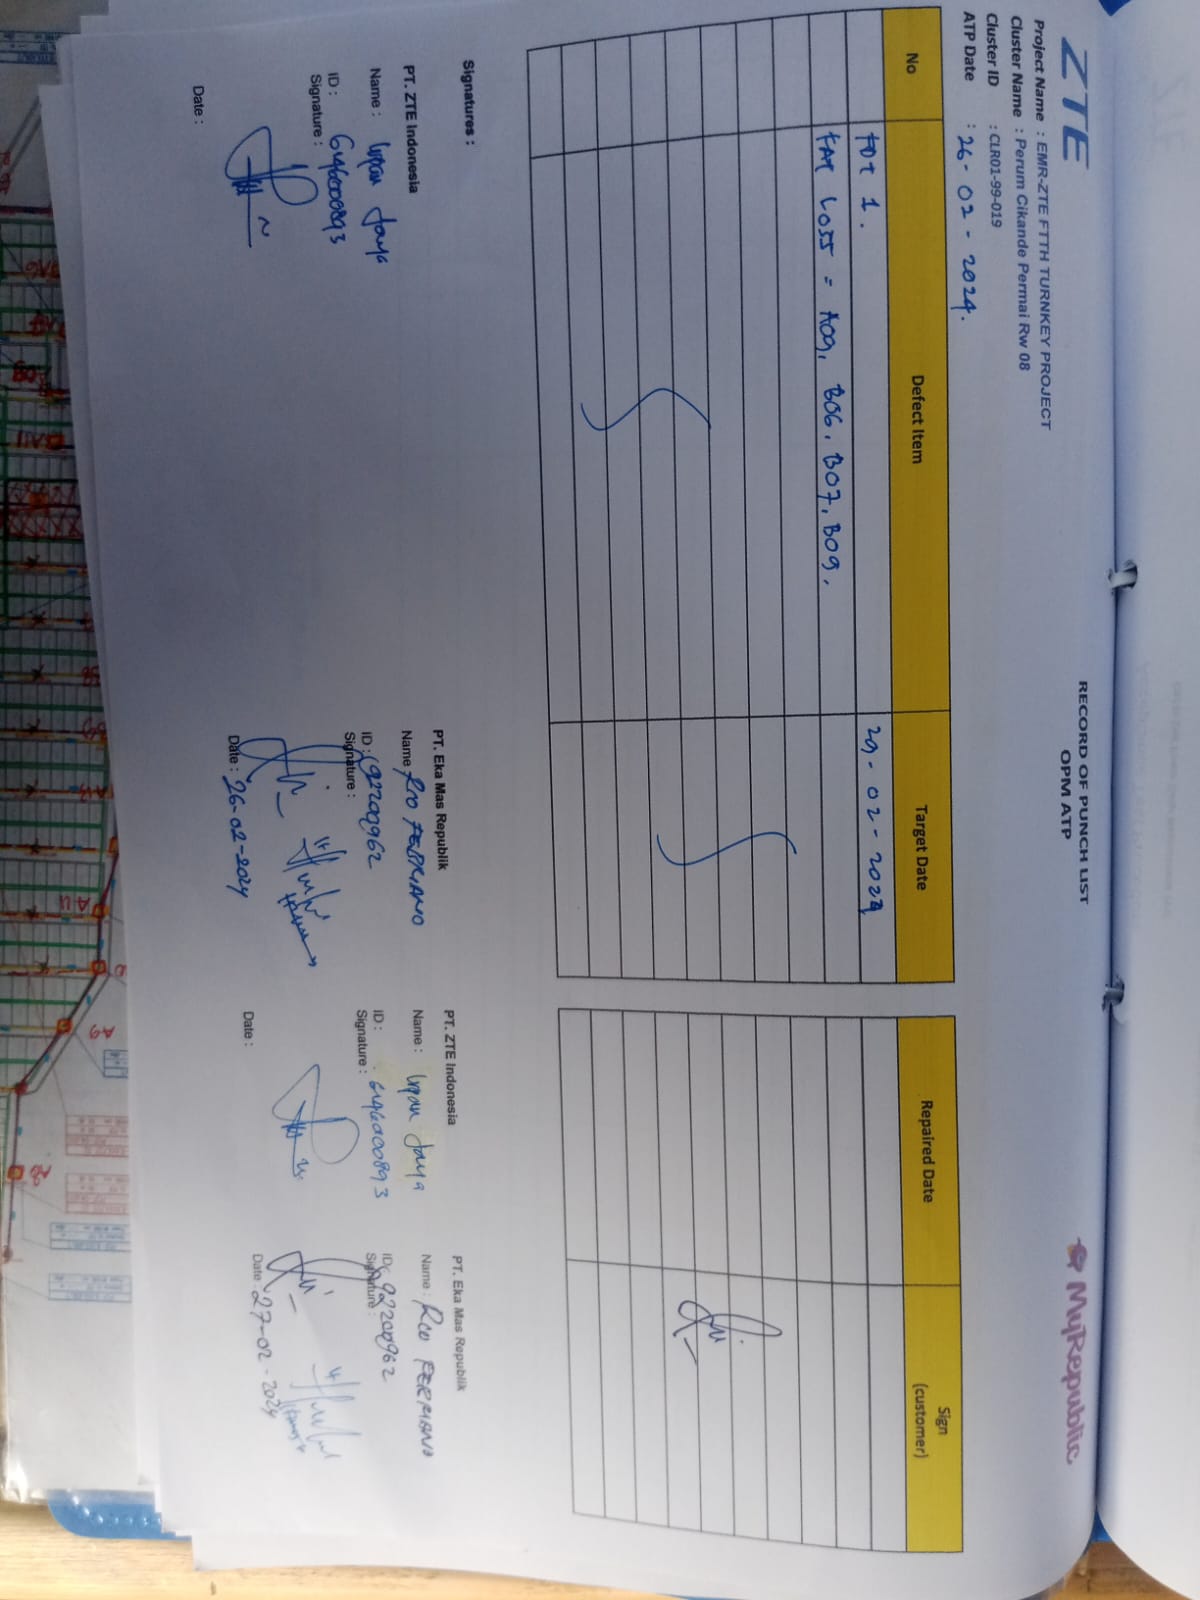 ZTE
RECORD OF PUNCH LIST
OPM ATP
MyRepublic
Project Name : EMR-ZTE FTTH TURNKEY PROJECT
Cluster Name : Perum Cikande Permai Rw 08
Cluster ID : CLR01-99-019
ATP Date : 26-02-2024.
No Defect Item Target Date Repaired Date Sign (customer)
FDT 1. 29-02-2024
FAT LOSS = A09, B06, B07, B09.
Signatures :
PT. ZTE Indonesia
Name : Jaya
ID : 6146000893
Signature :
Date :
PT. Eka Mas Republik
Name RIO FERMANO
ID : 092200962
Signature :
Date : 26-02-2024
PT. ZTE Indonesia
Name : Jaya
ID : 6146000893
Signature :
Date :
PT. Eka Mas Republik
Name : RIO FERMANO
ID : 092200962
Signature :
Date : 27-02-2024